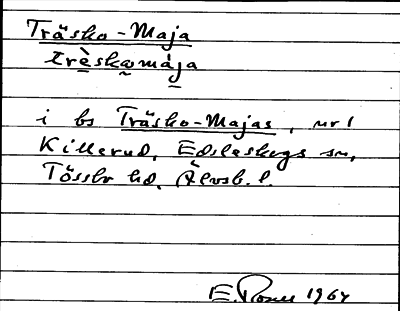 Träsko-Maja
trèskomája
i bs Träsko-Majas, nr 1
Killerud, Edsleskogs sn,
Tössbo hd, Älvsb. l.
E. 1964